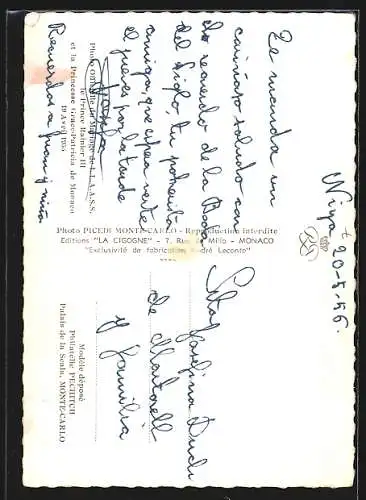 Niza 20-5-56.
Te manda un
cariñoso saludo con
los recuerdos de la Boda
del Siglo tu primito
amiga, que espera verte
el jueves por la tarde
Recuerdos a Juan y niña
Photo Officielle du Mariage de L.L.A.A.S.S.
le Prince Rainier III
et la Princesse Grace-Patricia de Monaco
19 Avril 1956
Photo PICEDI MONTE-CARLO - Reproduction interdite
Editions "LA CIGOGNE" - 7, Rue de Millo - MONACO
"Exclusivité de fabrication André Leconte"
Srta Josefina Duch
de Martorell
y familia
Modèle déposé
Philatelie PECHITCH
Palais de la Scala, MONTE-CARLO